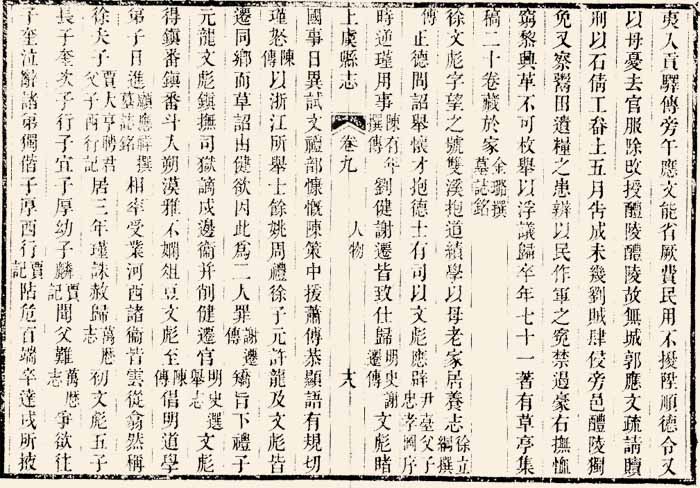 夷入貢驛傳旁午應文能省厥費民用不擾陞順德令又
以母憂去官服除改授醴陵醴陵故無城郭應文疏請贖
刑以石倩工畚土五月吿成未幾劉賊肆侵旁邑醴陵獨
免又察嚮田遺糧之患辨以民作軍之寃禁遏豪右撫恤
窮黎興革不可枚舉以浮議歸卒年七十一著有草亭集
稿二十卷藏於家金璐撰墓誌銘
徐文彪字望之號雙溪抱道績學以母老家居養志徐立綱撰
傳正德間詔舉懷才抱德士有司以文彪應辟尹臺父子忠孝圖序
時逆瑾用事陳有年撰傳劉健謝遷皆致仕歸明史謝遷傳文彪睹
上虞縣志 卷九 人物
國事日異試文禮部慷慨陳策中援蕭傅恭顯語有規切
瑾怒陳傳以浙江所舉士餘姚周禮徐子元許龍及文彪皆
遷同鄉而草詔由健欲因此爲二人罪謝遷傳矯旨下禮子
元龍文彪鎮撫司獄謫戍邊衞幷削健遷官明史選舉志文彪
得鎮番鎮番斗入朔漠雅不嫺俎豆文彪至陳傳倡明道學
弟子日進顧應祥撰墓誌銘相率受業河西諸衞皆雲從翕然稱
徐夫子賈大亨父子西行記居三年瑾誅赦歸萬厯志初文彪五子
長子奎次子行子宜子厚幼子麟賈記聞父難萬厯志爭欲往
子奎泣辭諸弟獨偕子厚西行賈記阽危百端卒達戍所掖